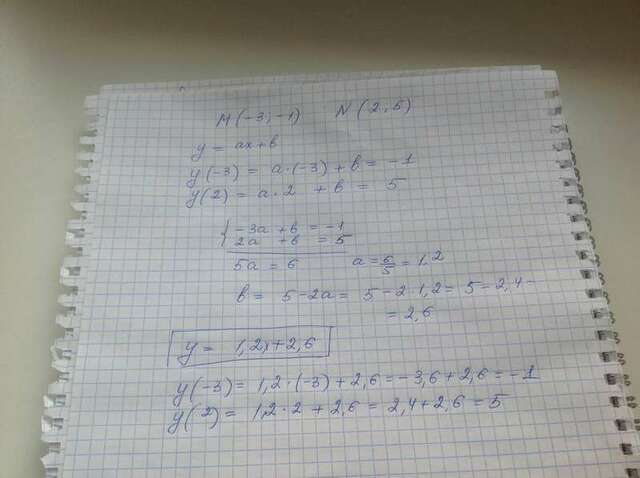 M(-3;-1) N(2;5)
y = ax+b
y(-3) = a·(-3)+b = -1
y(2) = a·2 +b = 5
{-3a +b = -1
2a +b = 5
5a = 6 a = 6/5 = 1,2
b = 5-2a = 5-2·1,2 = 5-2,4 =
= 2,6
y = 1,2x+2,6
y(-3) = 1,2·(-3)+2,6 = -3,6+2,6 = -1
y(2) = 1,2·2 +2,6 = 2,4+2,6 = 5